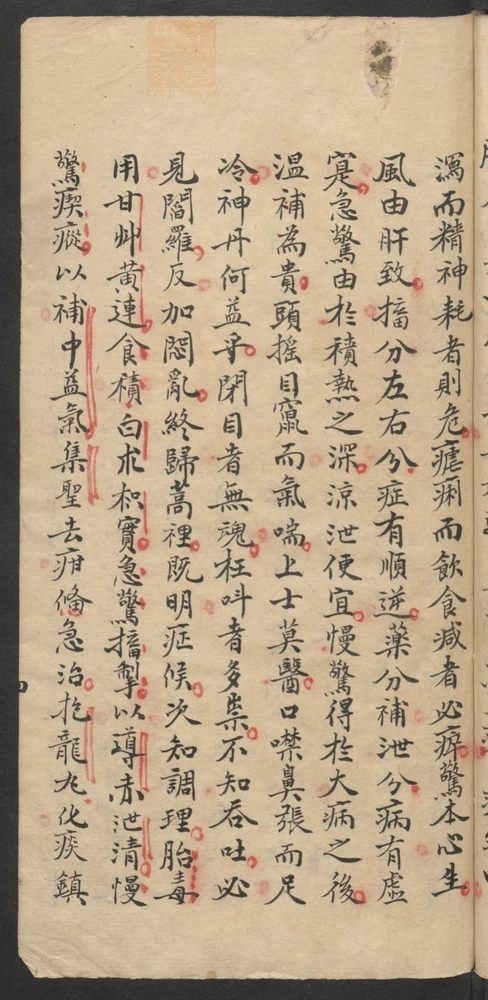 瀉而精神耗者則危瘧痢而飲食減者必瘁驚本心生
風由肝致搐分左右兮症有順逆藥分補泄兮病有虛
寔急驚由於積熱之深涼泄便宜慢驚得於大病之後
温補為貴頭搖目竄而氣喘上士莫醫口噤鼻張而足
冷神丹何益乎閉目者無魂枉呌者多祟不知吞吐必
見閻羅反加悶亂終歸蒿裡既明症候次知調理胎毒
用甘艸黃連食積白朮枳實急驚搐掣以導赤泄清慢
驚瘈瘲以補中益氣集聖去疳俻急治抱龍丸化痰鎮